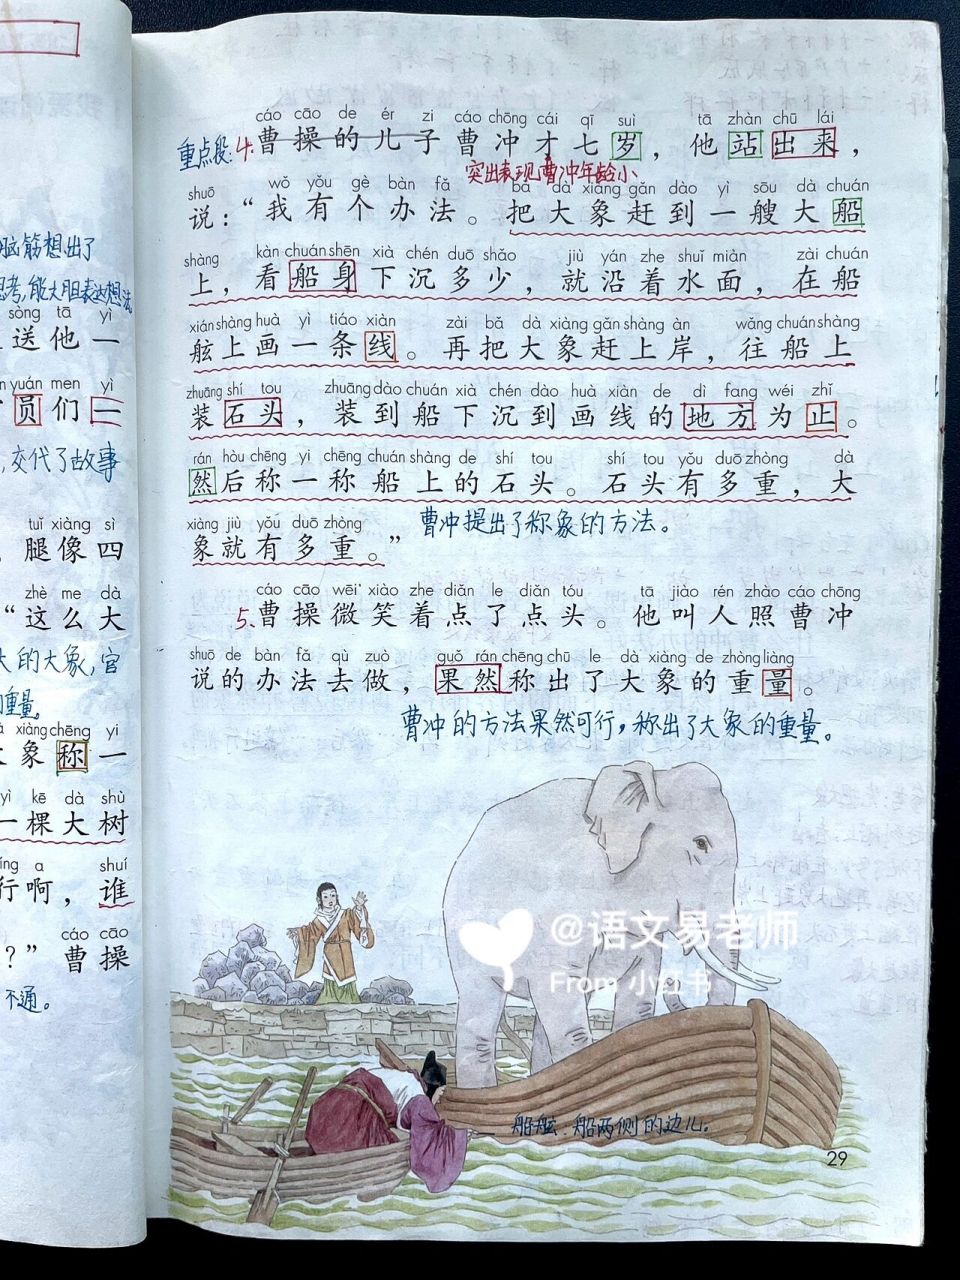 脑筋想出了
思考,能大胆表达想法。
sòng tā yì
送他一
yuán men yì
员们一
,交代了故事
tuǐ xiàng sì
腿像四
zhè me dà
“这么大
大的大象,官
重量。
xiàng chēng yi
象称一
yì kē dà shù
一棵大树
a shuí
行啊,谁
cáo cāo
?”曹操
不通。
cáo cāo de ér zi cáo chōng cái qī suì tā zhàn chū lái
重点段:4.曹操的儿子曹冲才七岁,他站出来,
突出表现曹冲年龄小
shuō wǒ yǒu gè bàn fǎ bǎ dà xiàng gǎn dào yì sōu dà chuán
说:“我有个办法。把大象赶到一艘大船
shàng kàn chuán shēn xià chén duō shǎo jiù yán zhe shuǐ miàn zài chuán
上,看船身下沉多少,就沿着水面,在船
xián shàng huà yì tiáo xiàn zài bǎ dà xiàng gǎn shàng àn wǎng chuán shàng
舷上画一条线。再把大象赶上岸,往船上
zhuāng shí tou zhuāng dào chuán xià chén dào huà xiàn de dì fang wéi zhǐ
装石头,装到船下沉到画线的地方为止。
rán hòu chēng yi chēng chuán shàng de shí tou shí tou yǒu duō zhòng dà
然后称一称船上的石头。石头有多重,大
xiàng jiù yǒu duō zhòng
象就有多重。”
曹冲提出了称象的方法。
cáo cāo wēi xiào zhe diǎn le diǎn tóu tā jiào rén zhào cáo chōng
5.曹操微笑着点了点头。他叫人照曹冲
shuō de bàn fǎ qù zuò guǒ rán chēng chū le dà xiàng de zhòng liàng
说的办法去做,果然称出了大象的重量。
曹冲的方法果然可行,称出了大象的重量。
@语文易老师
From 小红书
船舷:船两侧的边儿。
29